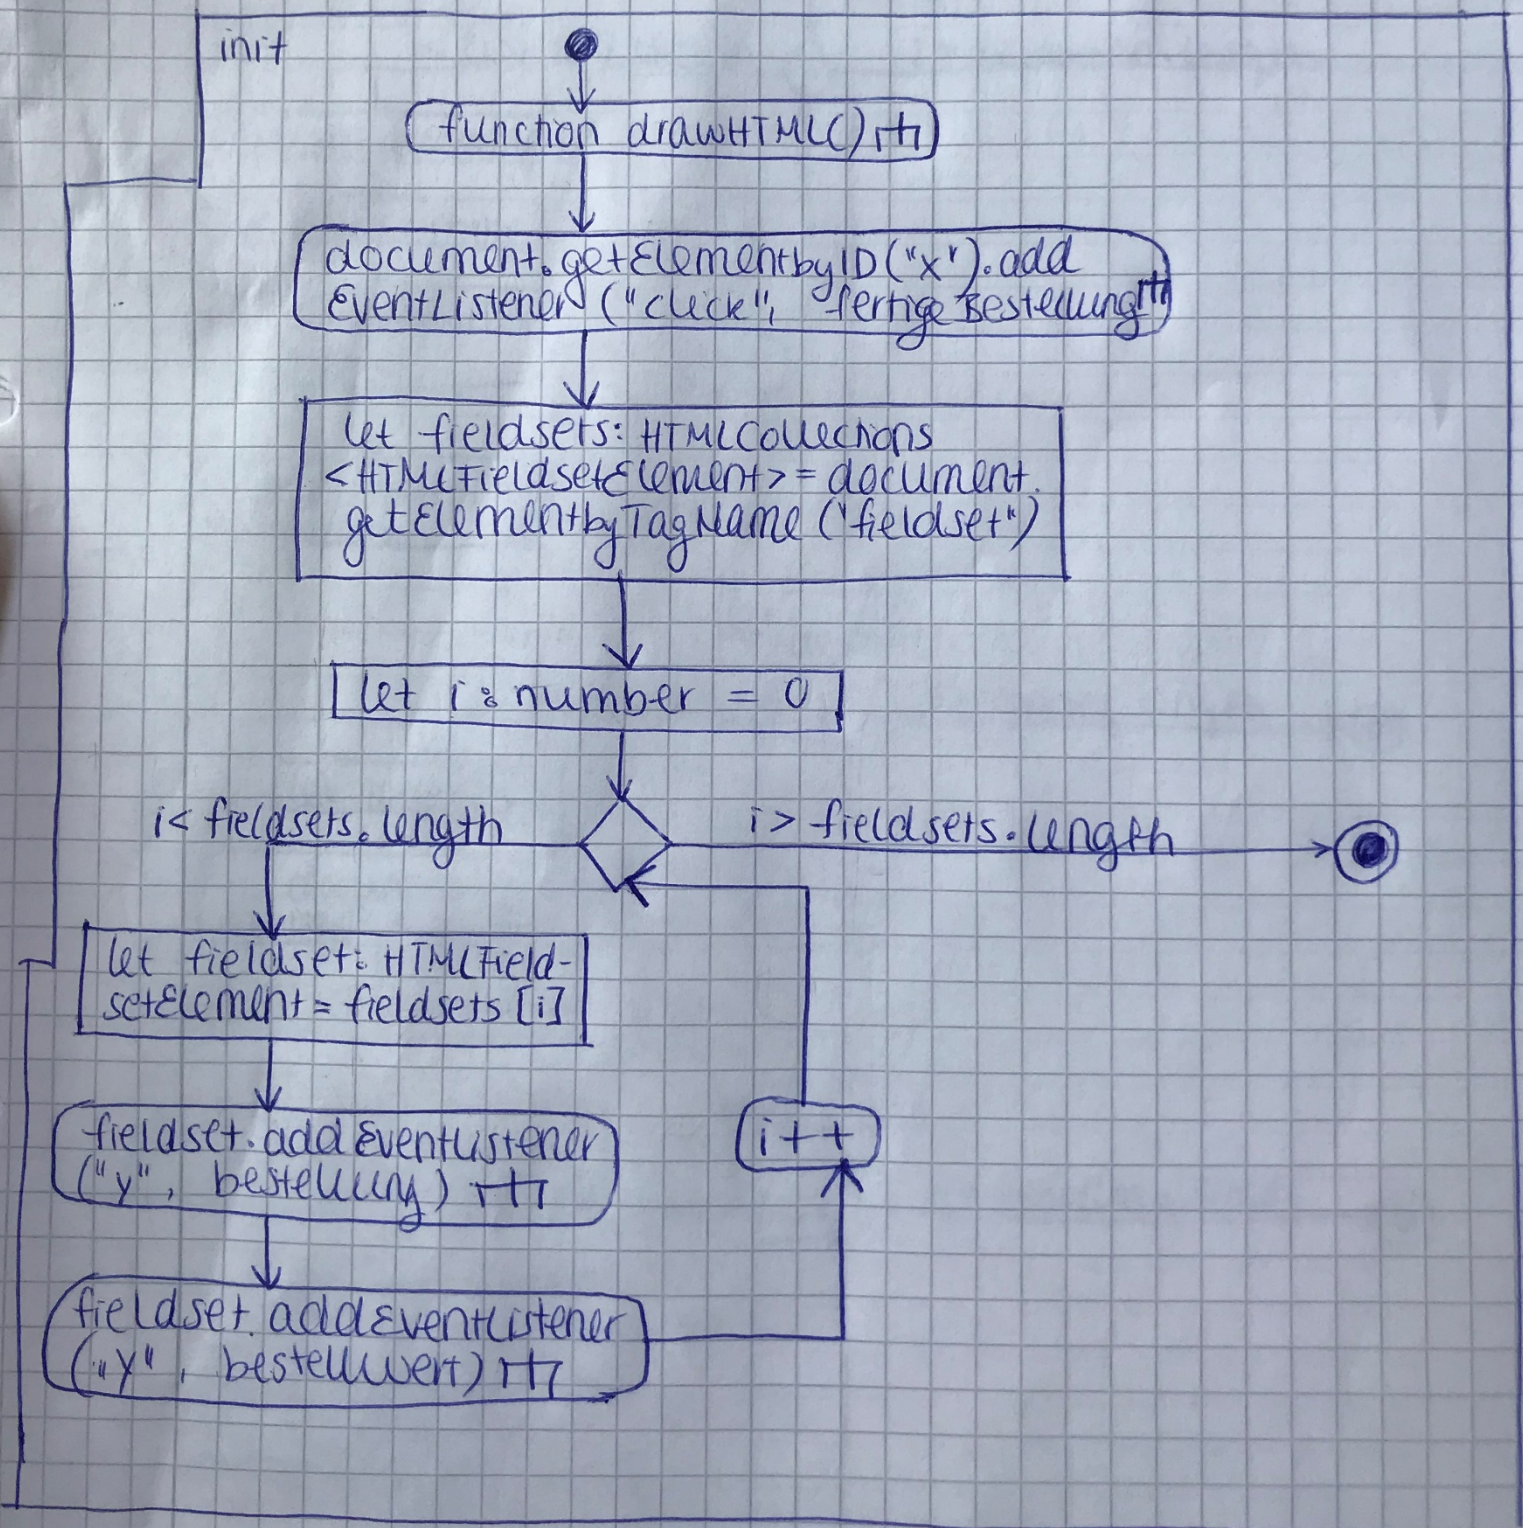 init
function drawHTML()
document.getElementbyID("x").add
EventListener ("click", fertigeBestellung
let fieldsets: HTMLCollections
<HTMLFieldsetElement> = document.
getElementbyTagName ("fieldset")
let i: number = 0
i< fieldsets.length
i> fieldsets.length
let fieldset: HTMLField-
setElement = fieldsets [i]
fieldset.addEventListener
("y", bestellung)
i++
fieldset.addEventListener
("y", bestellwert)